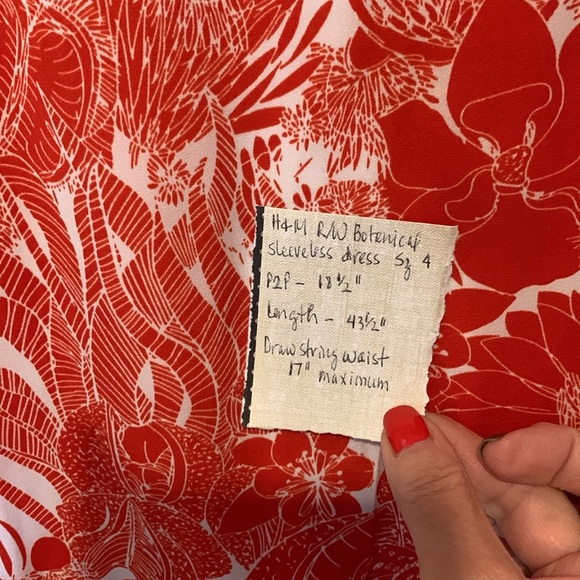 H&M R/W Botanical
sleeveless dress Sz 4
P2P - 18 1/2"
Length - 43 1/2"
Drawstring waist
17" maximum